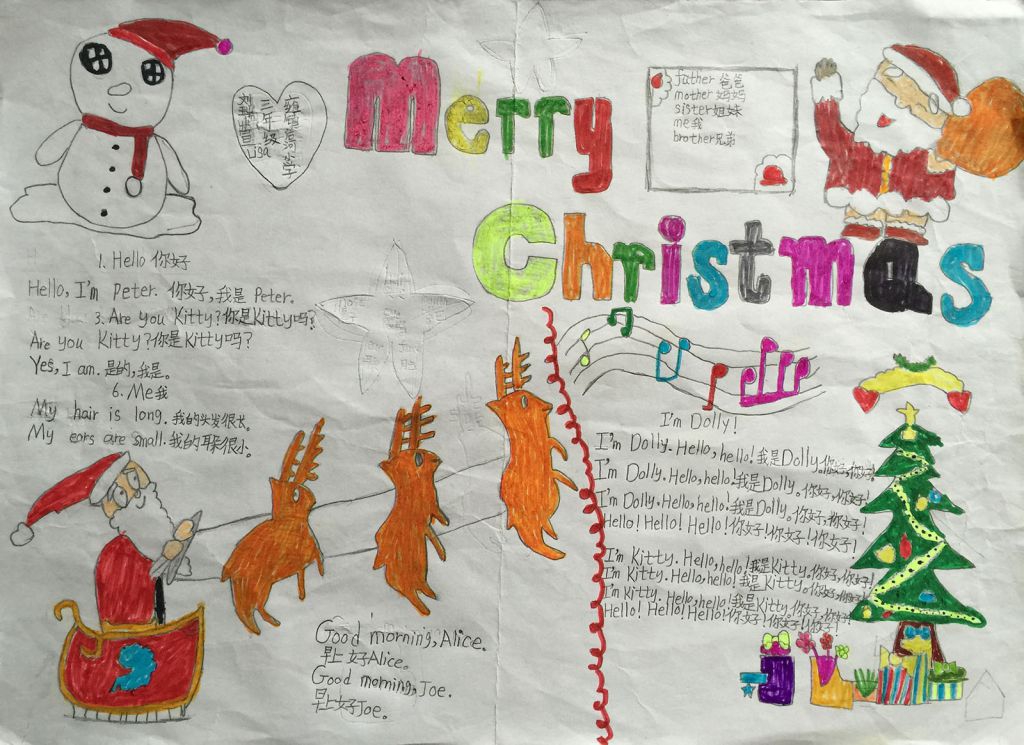 Merry
Christmas
三年级
Lisa
father 爸爸
mother 妈妈
sister 姐妹
me 我
brother 兄弟
1. Hello 你好
Hello, I'm Peter. 你好,我是 Peter.
3. Are you Kitty? 你是Kitty吗?
Are you Kitty? 你是Kitty吗?
Yes, I am. 是的,我是。
6. Me 我
My hair is long. 我的头发很长。
My ears are small. 我的耳朵很小。
I'm Dolly!
I'm Dolly. Hello, hello! 我是Dolly。你好,你好!
I'm Dolly. Hello, hello! 我是Dolly。你好,你好!
I'm Dolly. Hello, hello! 我是Dolly。你好,你好!
Hello! Hello! Hello! 你好!你好!你好!
I'm Kitty. Hello, hello! 我是Kitty。你好,你好!
I'm Kitty. Hello, hello! 我是Kitty。你好,你好!
I'm Kitty. Hello, hello! 我是Kitty。你好,你好!
Hello! Hello! Hello! 你好!你好!你好!
Good morning, Alice.
早上好Alice。
Good morning, Joe.
早上好Joe。